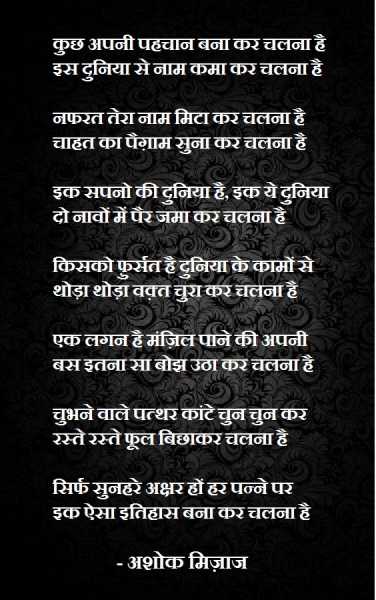 कुछ अपनी पहचान बना कर चलना है
इस दुनिया से नाम कमा कर चलना है
नफरत तेरा नाम मिटा कर चलना है
चाहत का पैग़ाम सुना कर चलना है
इक सपनो की दुनिया है, इक ये दुनिया
दो नावों में पैर जमा कर चलना है
किसको फ़ुर्सत है दुनिया के कामों से
थोड़ा थोड़ा वक़्त चुरा कर चलना है
एक लगन है मंज़िल पाने की अपनी
बस इतना सा बोझ उठा कर चलना है
चुभने वाले पत्थर कांटे चुन चुन कर
रस्ते रस्ते फूल बिछाकर चलना है
सिर्फ सुनहरे अक्षर हों हर पन्ने पर
इक ऐसा इतिहास बना कर चलना है
- अशोक मिज़ाज